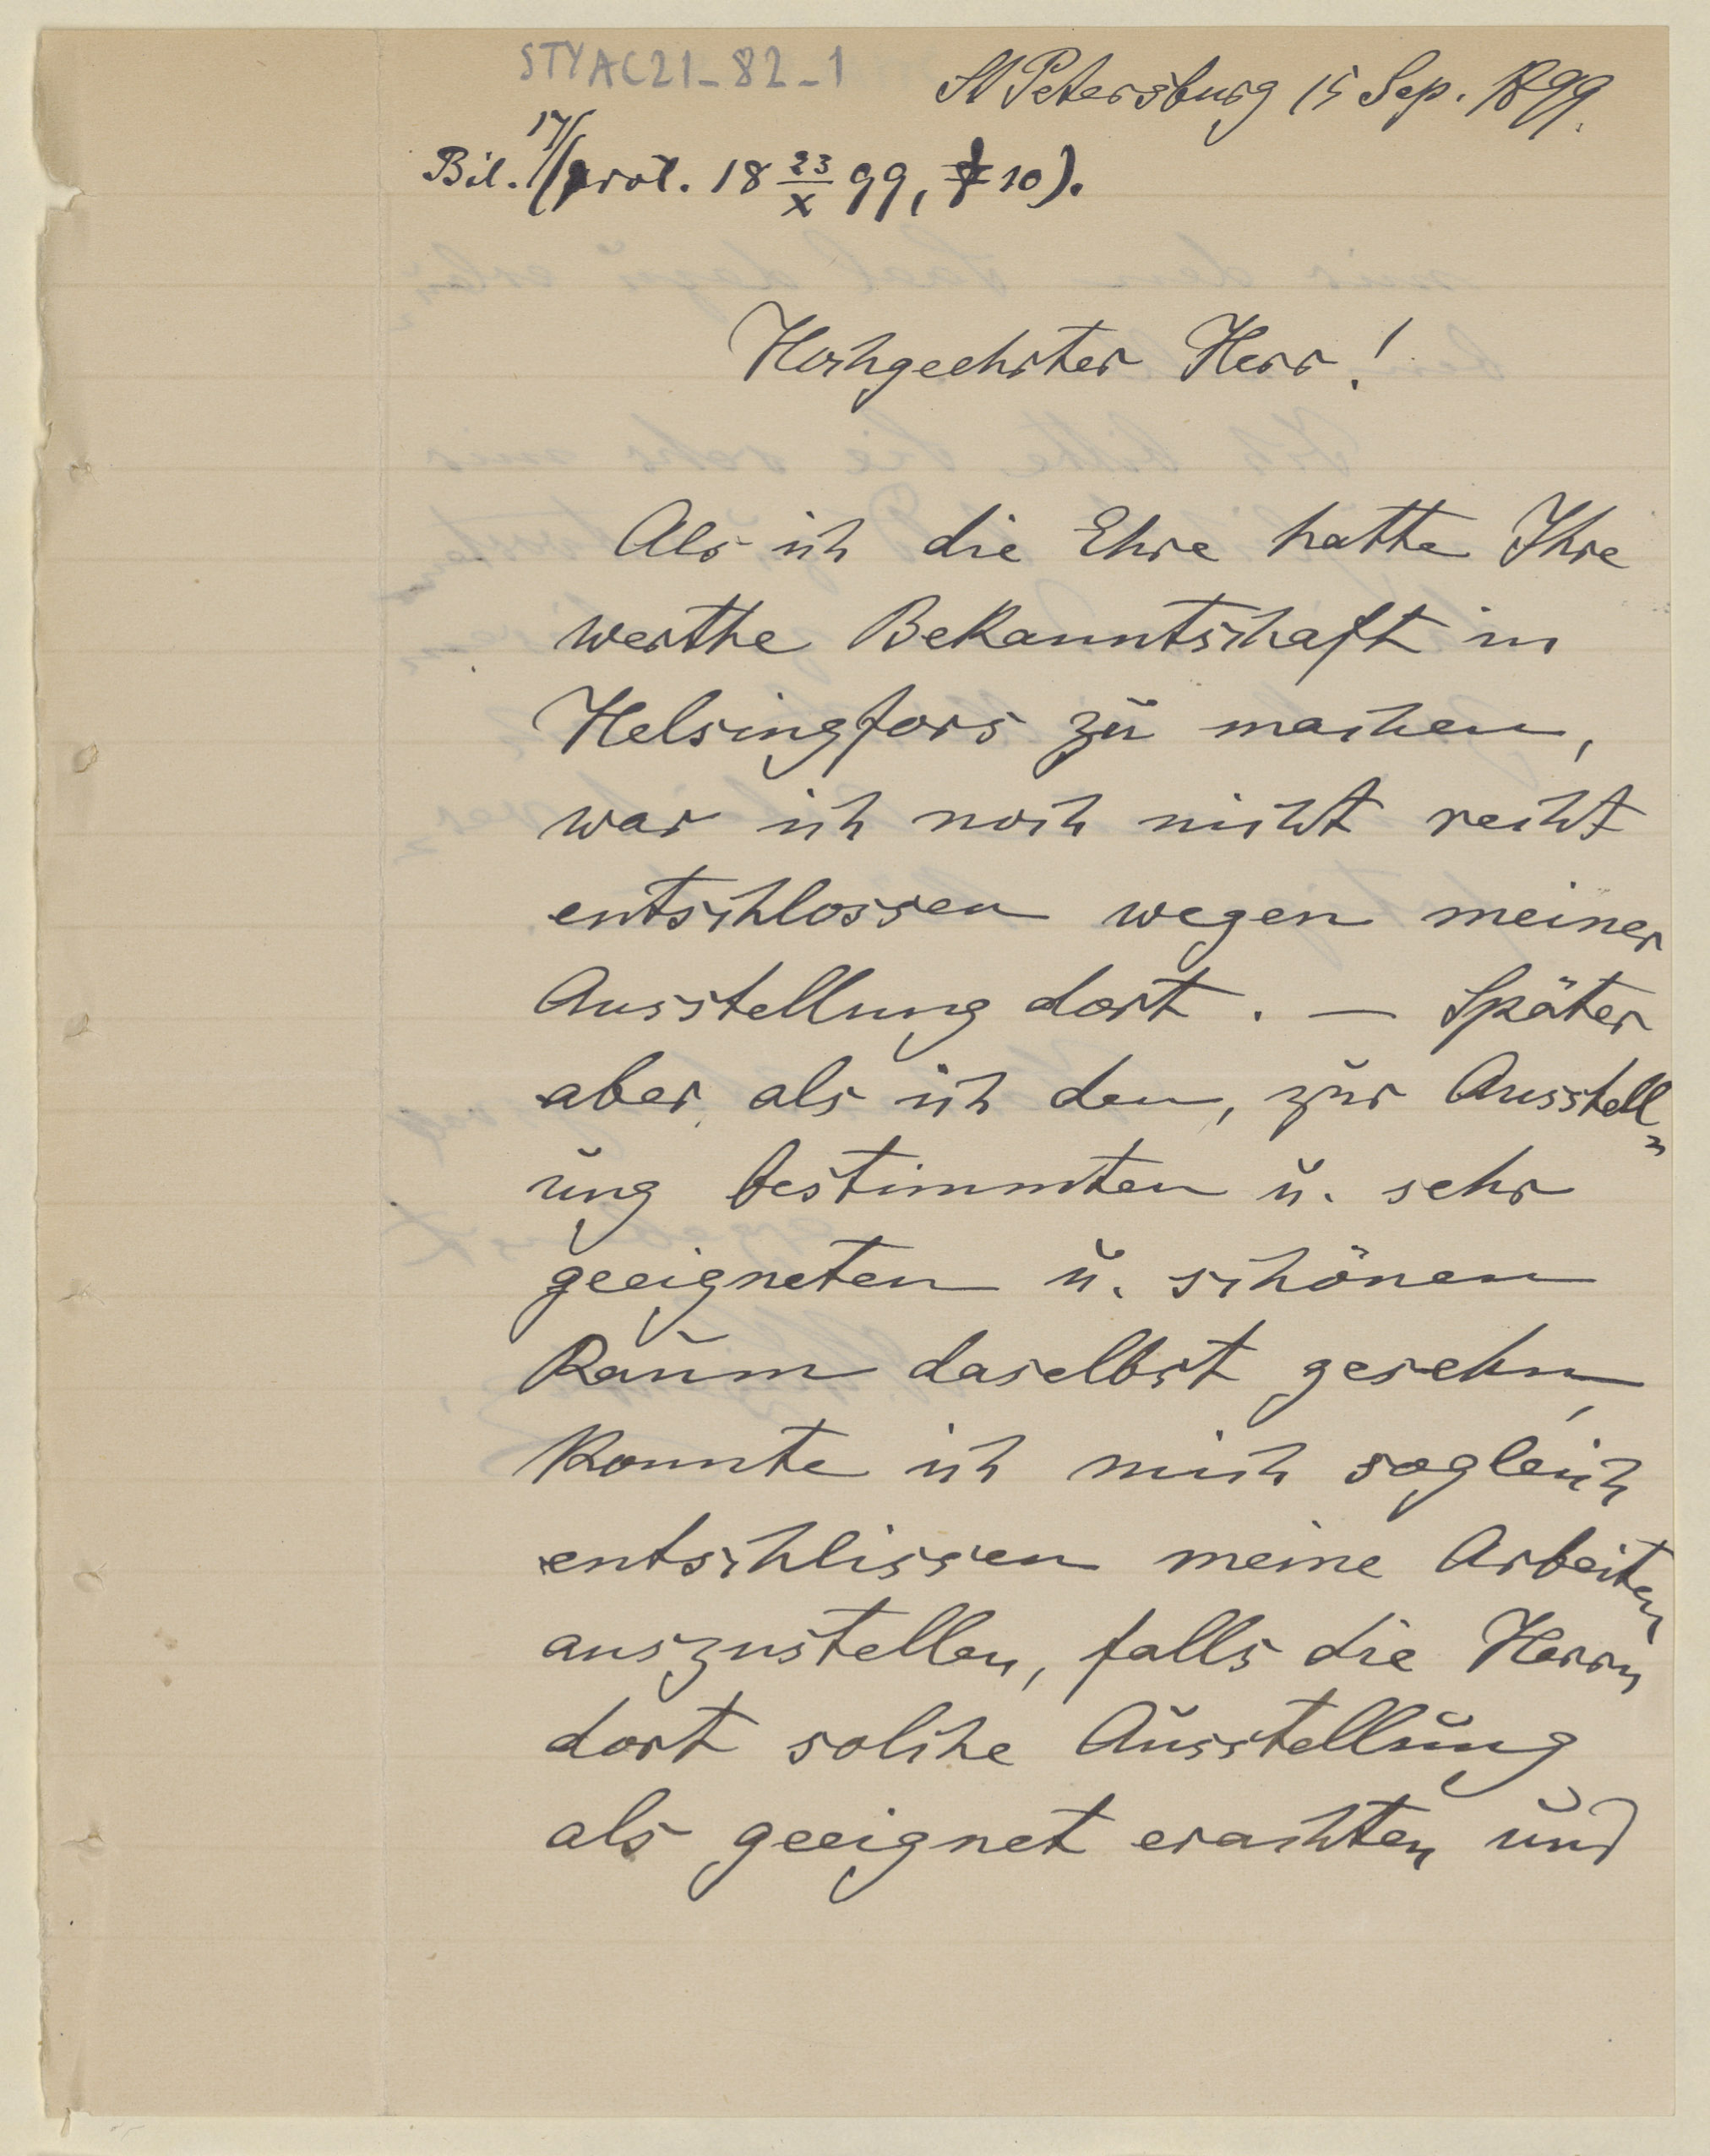 STYAC21_82_1
St Petersburg 15 Sep. 1899.
Bil. 17/(prot. 18 23/X 99, § 10).
Hochgeehrter Herr!
Als ich die Ehre hatte Ihre
werthe Bekanntschaft in
Helsingfors zu machen,
war ich noch nicht recht
entschlossen wegen meiner
Ausstellung dort. — Später
aber als ich den, zur Ausstell„
ung bestimmten u. sehr
geeigneten u. schönen
Raum daselbst gesehn,
konnte ich mich sogleich
entschlissen meine Arbeiten
auszustellen, falls die Herrn
dort solche Ausstellung
als geeignet erachten und